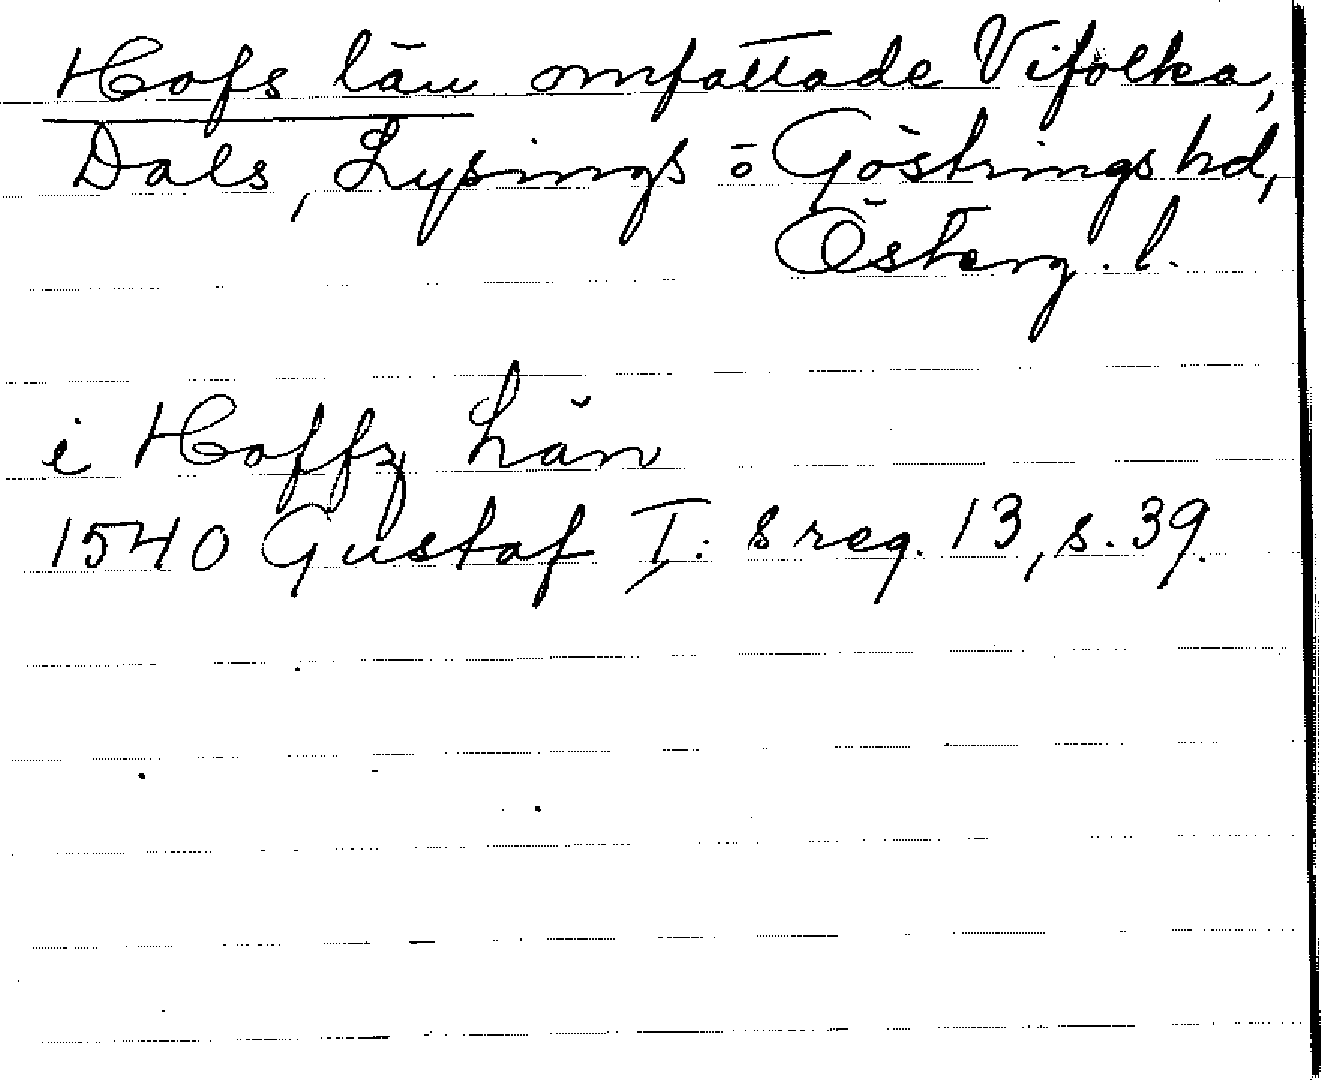 Hofs län omfattade Vifolka,
Dals, Lysings o Göstrings hd,
Österg. l.
i Hoffz Län
1540 Gustaf I: s reg. 13, s. 39.